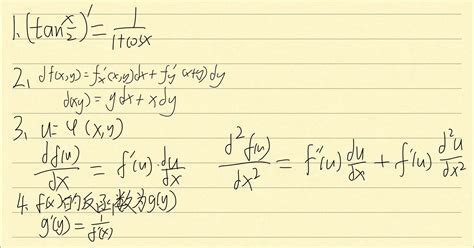 1. (tan x/2)' = 1/(1+cosx)
2. df(x,y) = f'x(x,y)dx + f'y(x+y)dy
d(xy) = ydx + xdy
3. u = φ(x,y)
df(u)/dx = f'(u)·du/dx  d²f(u)/dx² = f''(u) du/dx + f'(u) d²u/dx²
4. f(x)的反函数为g(y)
g'(y) = 1/f'(x)